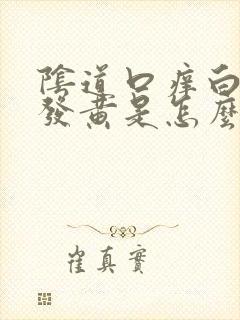 陰道口痒白
發黃是怎麼
崔真實